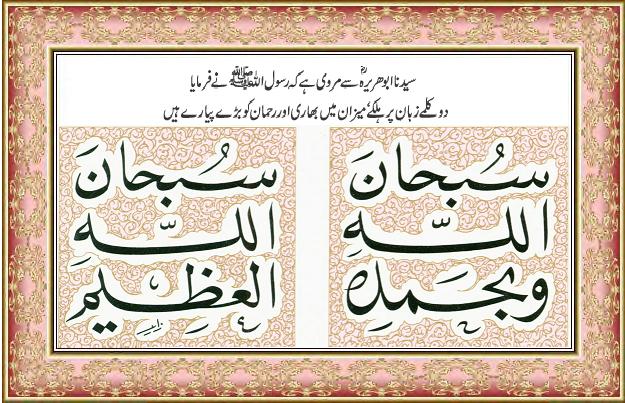 سیدنا ابوھریرہؓ سے مروی ہے کہ رسول اللہ ﷺ نے فرمایا
دو کلمے زبان پر ہلکے، میزان میں بھاری اور رحمان کو بڑے پیارے ہیں
سُبحَانَ
اللّٰهِ
وبحمدهِ
سُبحَانَ
اللّٰهِ
العظِيمِ